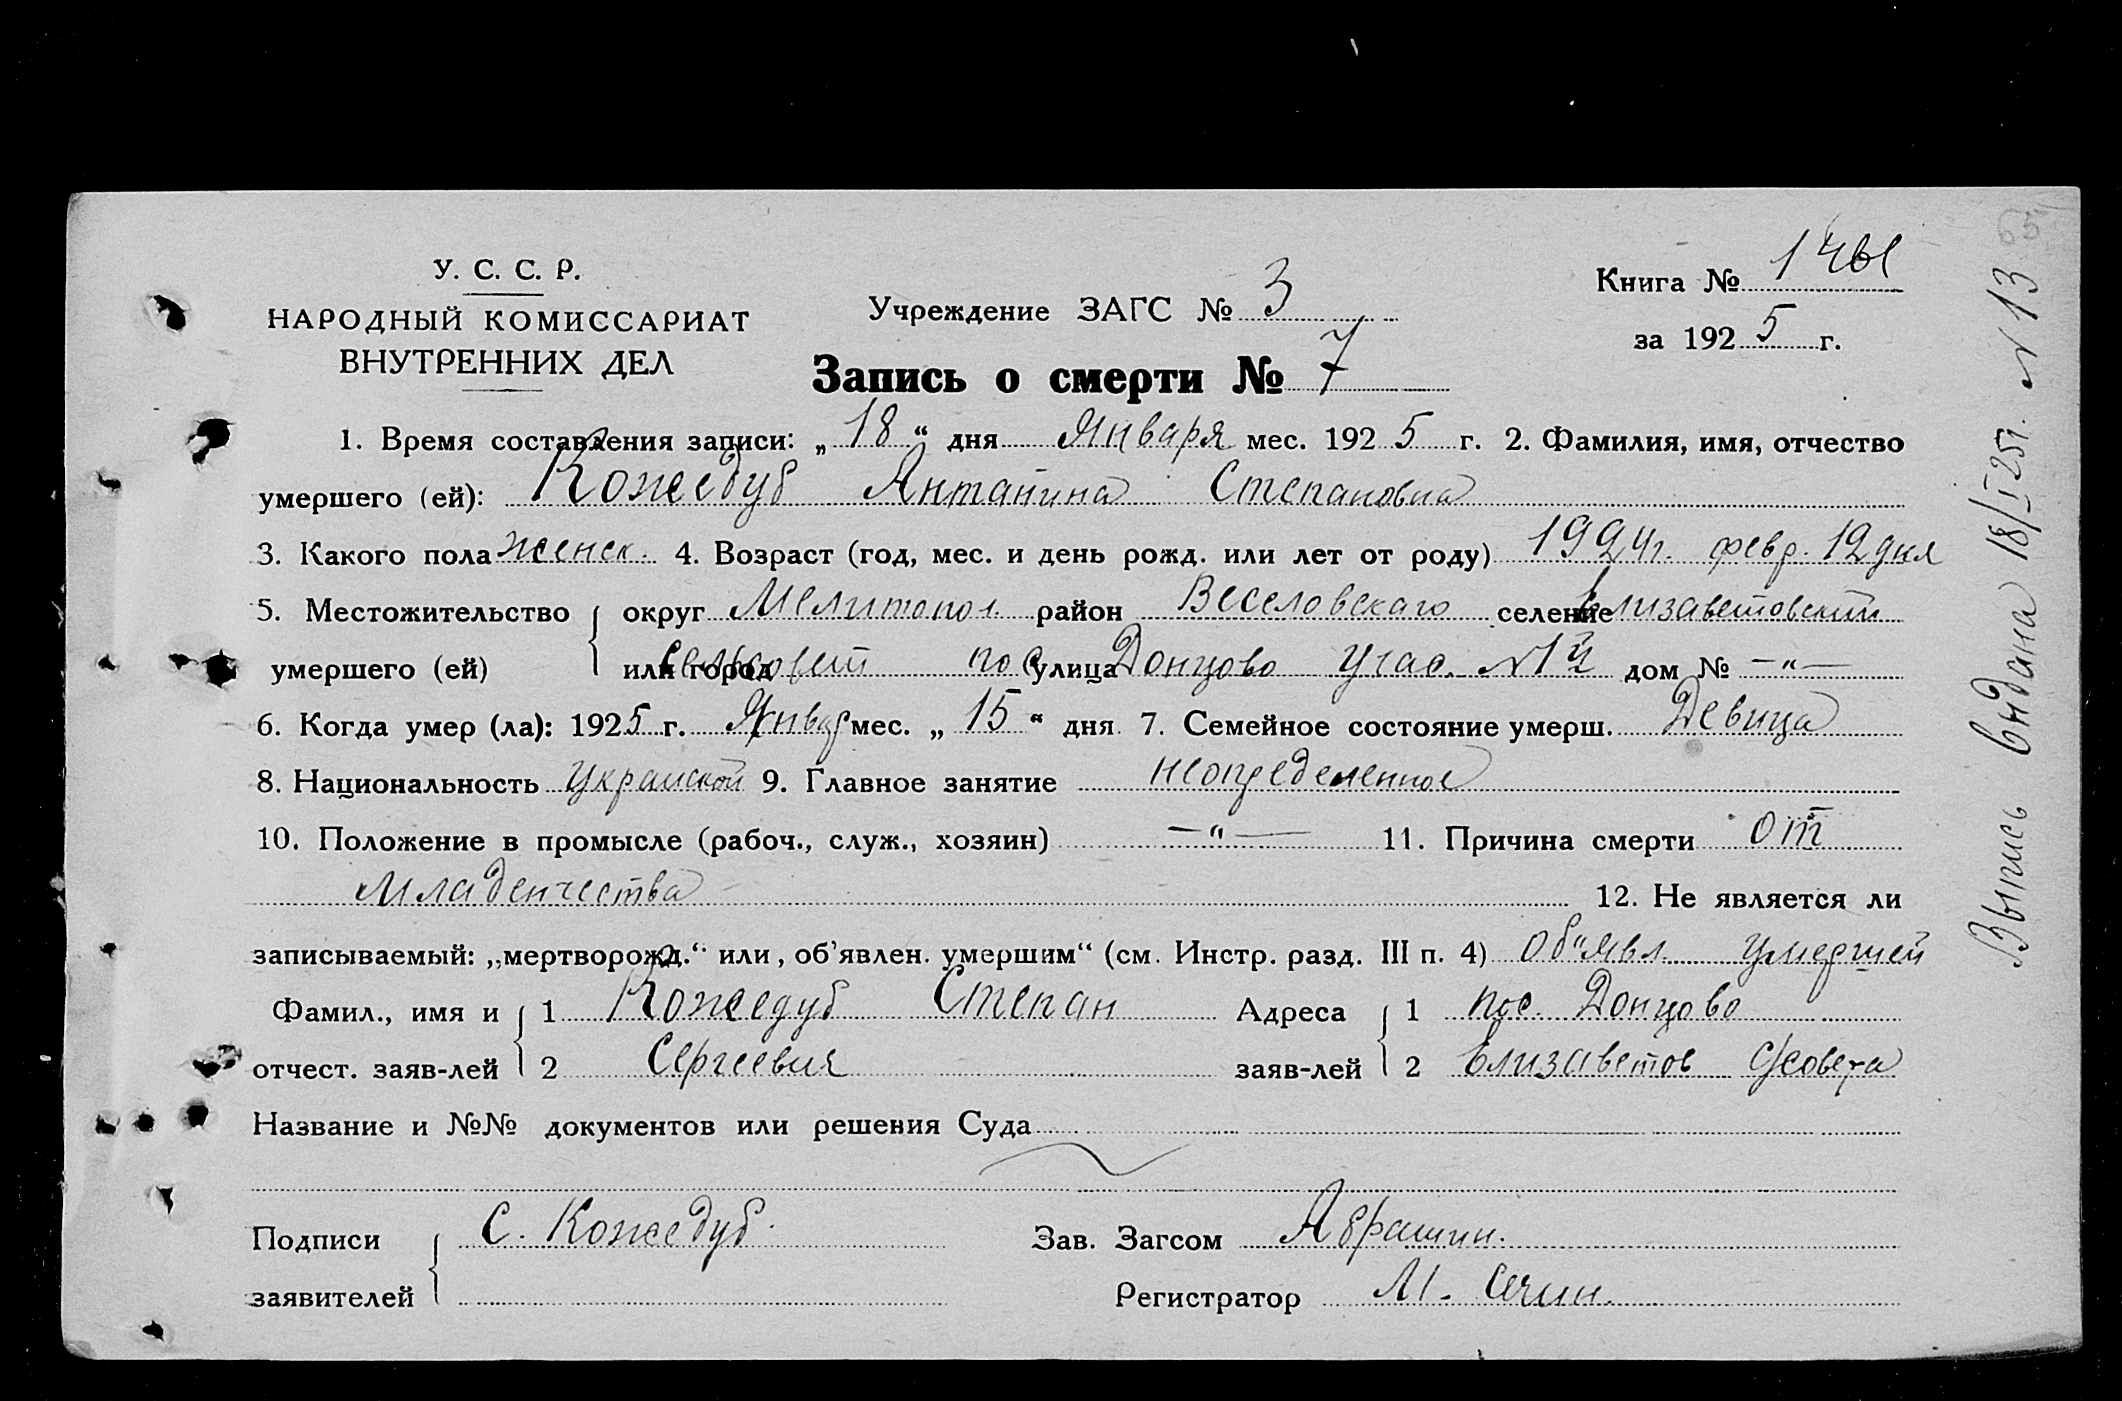 У. С. С. Р.
НАРОДНЫЙ КОМИССАРИАТ
ВНУТРЕННИХ ДЕЛ
Учреждение ЗАГС № 3
Книга №
за 1925 г.
Запись о смерти № 7
1. Время составления записи: „18“ дня Января мес. 1925 г. 2. Фамилия, имя, отчество
умершего (ей): Кожедуб Антанина Степановна
3. Какого пола женск. 4. Возраст (год, мес. и день рожд. или лет от роду) 1924г. февр. 12 дня
5. Местожительство округ Мелитопол. район Веселовскаго селение Елизаветовский
умершего (ей) или город сельсовет пос улица Донцово Учас. №1й дом № —„—
6. Когда умер (ла): 1925 г. Январ мес. „15“ дня 7. Семейное состояние умерш. Девица
8. Национальность 9. Главное занятие неопределенное
10. Положение в промысле (рабоч., служ., хозяин) —„— 11. Причина смерти от
Младенчества 12. Не является ли
записываемый: „мертворожд.“ или, об’явлен. умершим“ (см. Инстр. разд. III п. 4) об“явл умершей
Фамил., имя и 1 Кожедуб Степан Адреса 1 пос. Донцово
отчест. заяв-лей 2 Сергеевич заяв-лей 2 Елизаветов с/совета
Название и №№ документов или решения Суда
Подписи С. Кожедуб Зав. Загсом Абрашин.
заявителей Регистратор
Выпись выдана 18/I 25г. №13